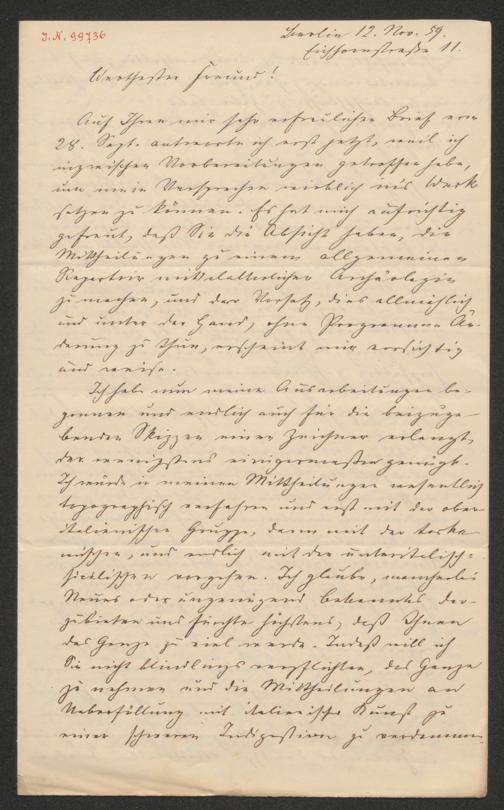 J. N. 99736
Berlin 12. Nov. 59.
Eichhornstraße 11.
Werthester Freund!
Auf Ihren mir sehr erfreulichen Brief vom
28. Sept. antworte ich erst jetzt, weil ich
inzwischen Vorbereitungen getroffen habe,
um mein Versprechen wirklich in's Werk
setzen zu können. Es hat mich aufrichtig
gefreut, daß Sie die Absicht haben, die
Mittheilungen zu einem allgemeinen
Repertoir mittelalterlicher Archäologie
zu machen, und der Vorsatz, dies allmählich
und unter der Hand, ohne Programm Än-
derung zu thun, erscheint mir vorsichtig
und weise.
Ich habe nun meine Ausarbeitungen be-
gonnen und endlich auch für die beizuge-
benden Skizzen einen Zeichner erlangt,
der wenigstens einigermaßen genügt.
Ich würde in meinen Mittheilungen wesentlich
topographisch verfahren und erst mit der ober-
italienischen Gruppe, dann mit der toska-
nischen, und endlich mit der unteritalisch-
sicilischen vorgehen. Ich glaube, mancherlei
Neues oder ungenügend Bekanntes dar-
zubieten und fürchte höchstens, daß Ihnen
das Ganze zu viel werde. Indeß will ich
Sie nicht blindlings verpflichten, das Ganze
zu nehmen und die Mittheilungen an
Ueberfüllung mit italienischer Kunst zu
einer schweren Indigestion zu verdammen.